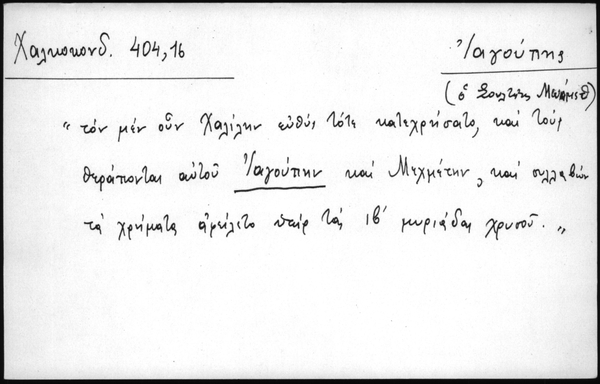 Χαλκοκονδ. 404,16
Ἰαγούπης
(ὁ Σουλτάνος Μωάμεθ)
" τόν μέν οὖν Χαλίλην εὐθύς τότε κατεχρήσατο, καί τούς
θεράποντας αὐτοῦ Ἰαγούπην καί Μεχμέτην, καί συλλαβών
τά χρήματα ἀφείλετο ὑπέρ τάς ιβ' μυριάδας χρυσοῦ. "